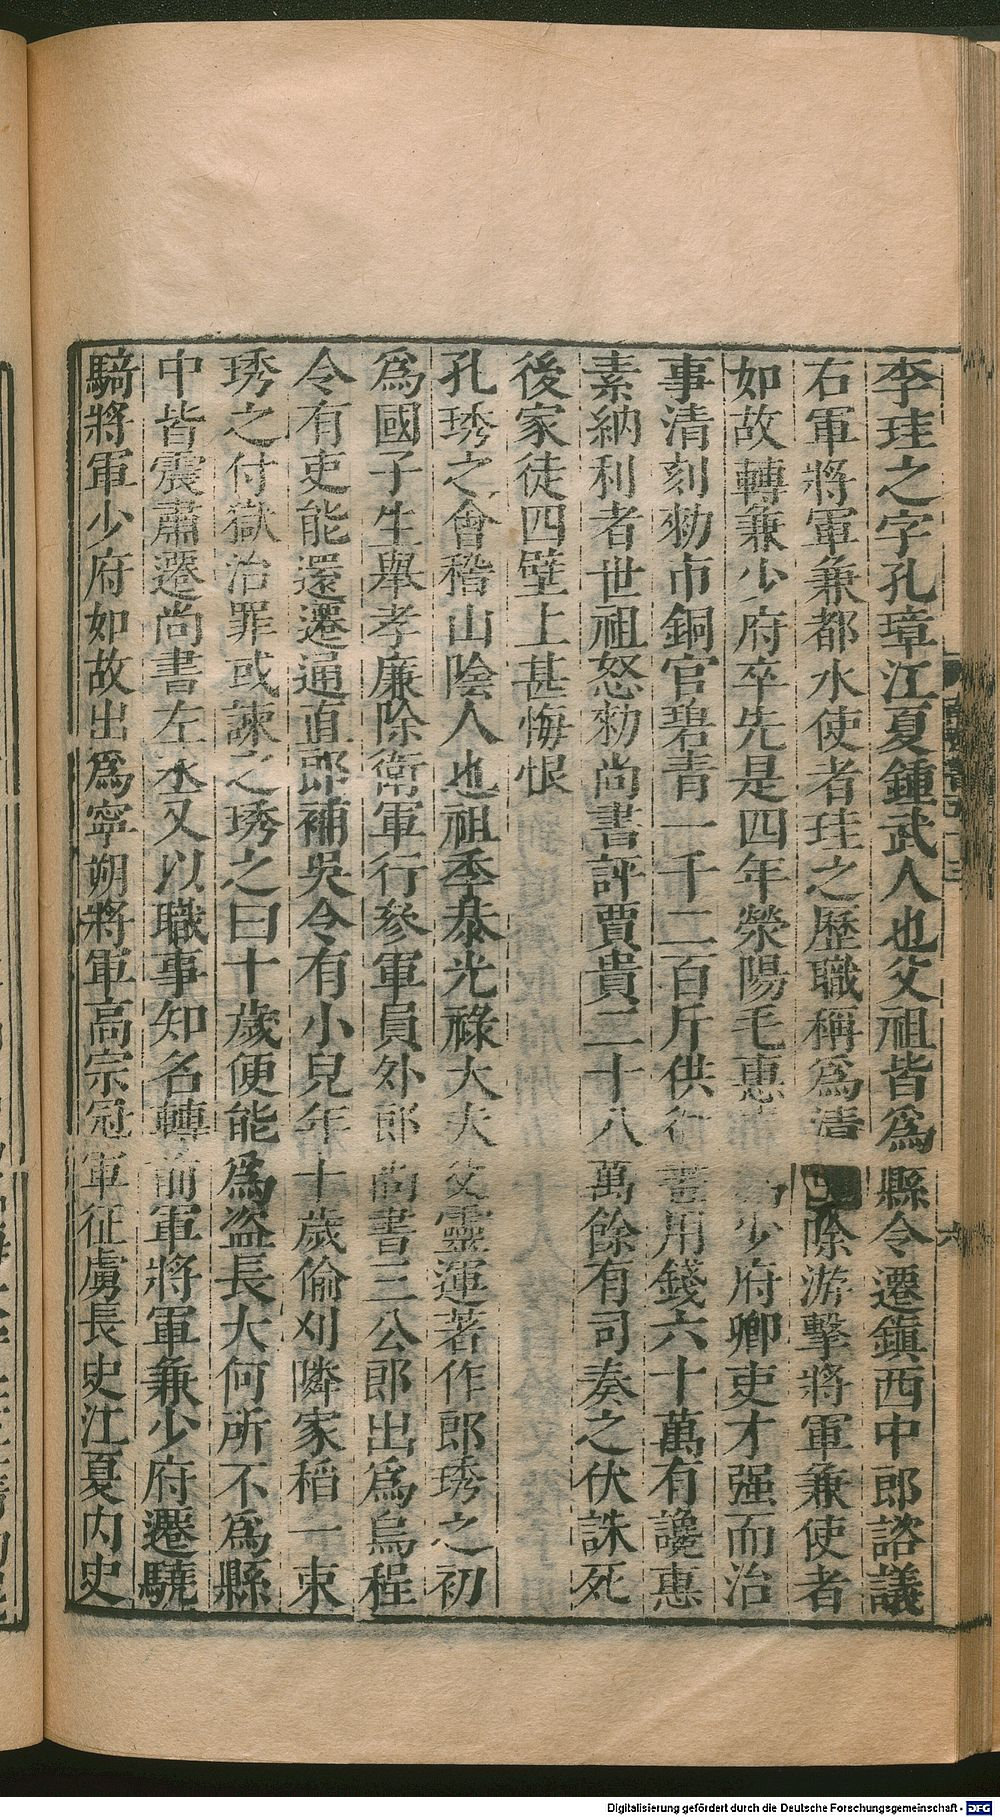 李珪之字孔璋江夏鍾武人也父祖皆爲縣令遷鎭西中郎諮議
右軍將軍兼都水使者珪之歷職稱爲清除游擊將軍兼使者
如故轉兼少府卒先是四年滎陽毛惠爲少府卿吏才强而治
事清刻勑市銅官碧青一千二百斤供御畫用錢六十萬有讒惠
素納利者世祖怒勑尚書評賈貴二十八萬餘有司奏之伏誅死
後家徒四壁上甚悔恨
孔琇之會稽山陰人也祖季恭光祿大夫父靈運著作郎琇之初
爲國子生舉孝廉除衛軍行參軍員外郎尚書三公郎出爲烏程
令有吏能還遷通直郎補吳令有小兒年十歲偷刈隣家稻一束
琇之付獄治罪或諫之琇之曰十歲便能爲盜長大何所不爲縣
中皆震肅遷尚書左丞又以職事知名轉前軍將軍兼少府遷驍
騎將軍少府如故出爲寧朔將軍高宗冠軍征虜長史江夏內史
六
Digitalisierung gefördert durch die Deutsche Forschungsgemeinschaft - DFG